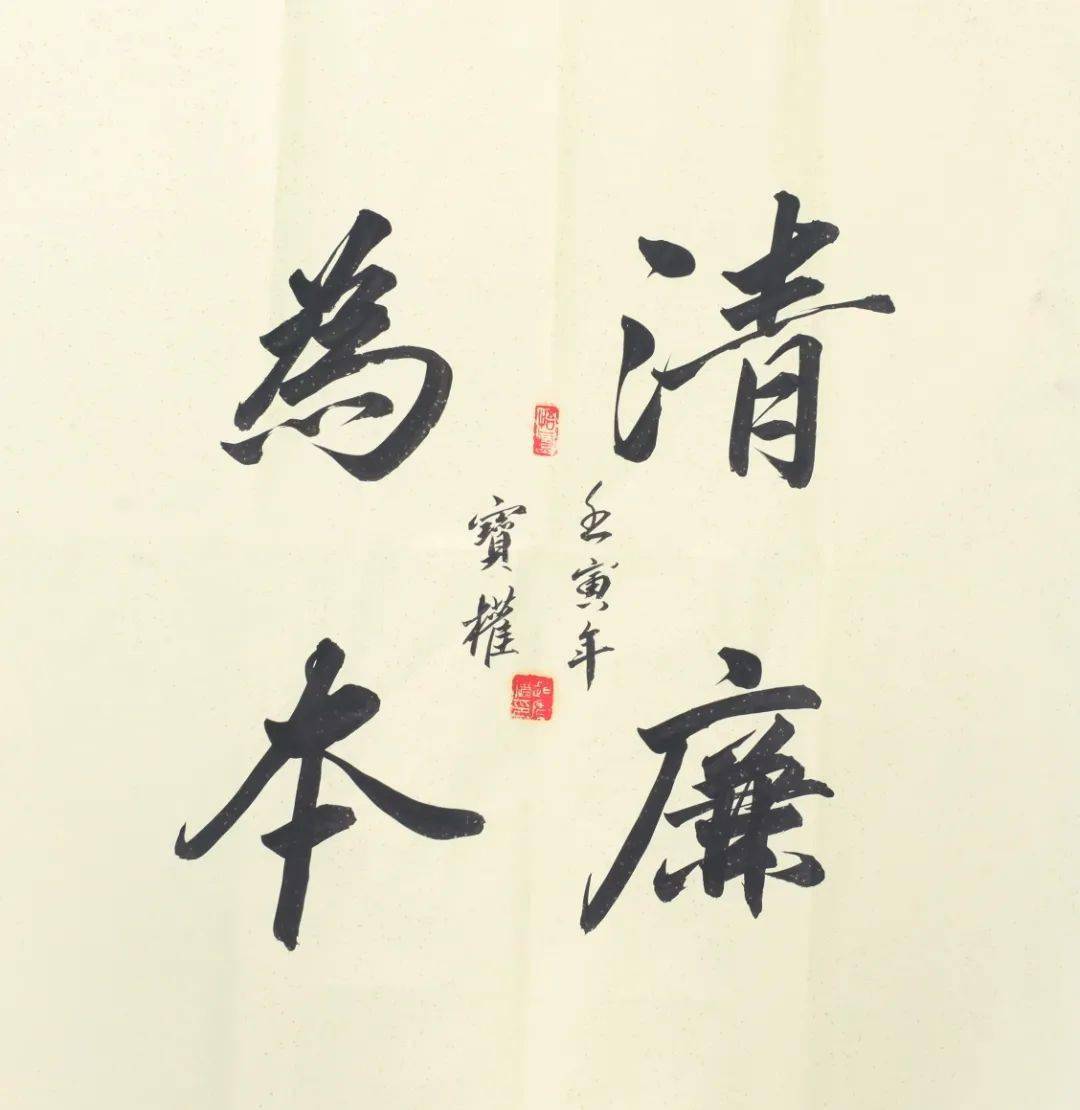 清廉
為本
壬寅年
寶權